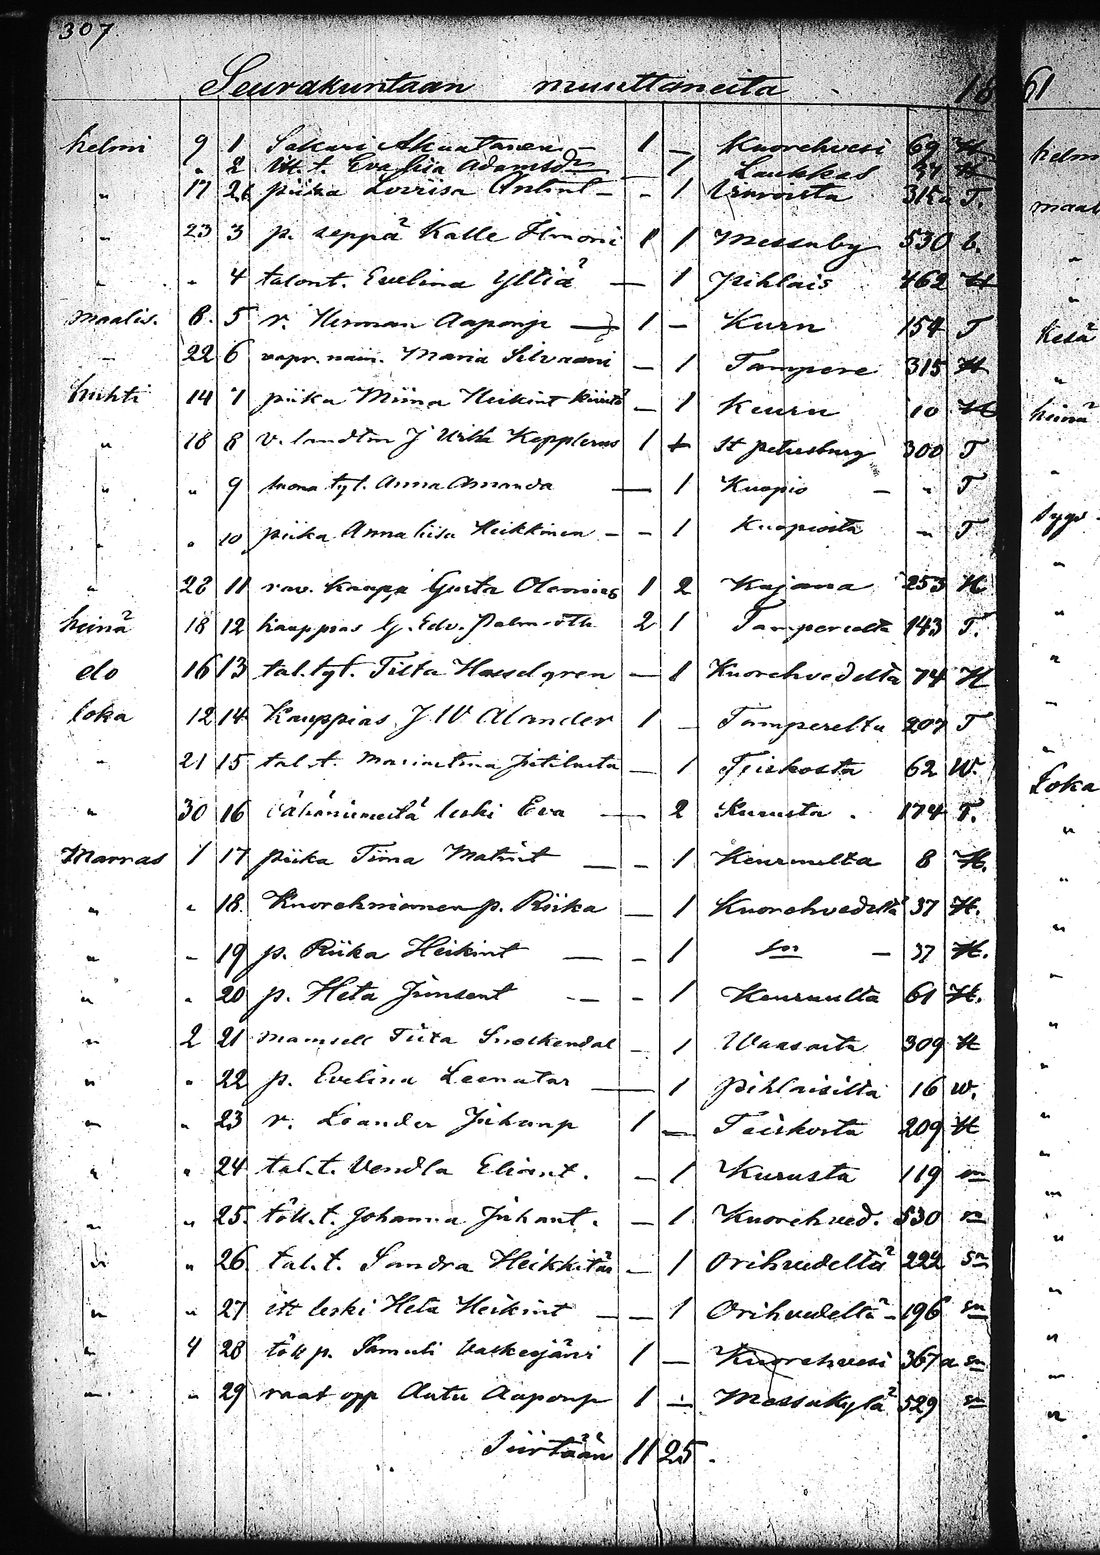 307
Seurakuntaan muuttaneita 1861
helmi 9 1 Sakari 1 – Kuorehvesi 69 H
" 2 itt. t. Eva Liisa Adamsd – 1 Laukkas 37 H
" 17 2b piika Loviisa – 1 315a T.
" 23 3 p. seppä Kalle 1 1 Messuby 530 b.
" " 4 talont. Evelina Yltiä – 1 Pihlais 462 H
maalis. 8. 5 r. Herman Aaponp – 1 – Kuru 154 T
– 22 6 vapr. nain. Maria – 1 Tampere 315 H
huhti 14 7 piika Miina Heikint – 1 Keuru 10 H
" 18 8 v. landtm J Vilh Kepplerus 1 + St petersburg 300 T
" " 9 tyt. Anna Amanda — 1 Kuopio – " T
" " 10 piika Anna Liisa Heikkinen – – 1 Kuopiosta " T
" 28 11 rav. kaupp Gusta 1 2 Kajana 253 H
heinä 18 12 kauppias G. Edv. Palmroth 2 1 Tampereelta 143 T.
elo 16 13 tal. tyt. Tilta Hasselgren — 1 Kuorehvedeltä 74 H
loka 12 14 Kauppias J W Alander 1 – Tampereltu 207 T
" 21 15 tal. t. — 1 Teiskosta 62 W.
" 30 16 leski Eva — 2 Kurusta . 174 T.
Marras 1 17 piika Tiina Matint — – 1 Keuruulta 8 H.
" " 18 Kuorehniemen p. Riika — 1 Kuorehvedeltä 37 H.
" – 19 p. Riika Heikint — – 1 sn – 37 H.
" " 20 p. Heta – – – 1 Keuruulta 61 H.
" 2 21 Mamsell – 1 Waasasta 309 H
" " 22 p. Evelina Leenatar — 1 Pihlaisilta 16 W.
" " 23 r. Leander Juhanp 1 – Teiskosta 209 H
" " 24 tal. t. Vendla Eliant. – 1 Kurusta 119 sn
" " 25. töll. t. Johanna Juhant. – 1 Kuorehved. 530 sn
" " 26. tal. t. Sandra Heikkitär – 1 Orihvedeltä 222 sn
" " 27 itt leski Heta Heikint – – 1 Orihvedeltä – 196 sn
" 4 28 töll p. Samuli Vaskesjärvi 1 – Kuorehvesi 367a sn
" " 29 raat opp Antu Aaponp 1 – Messukylä 529 sn
Siirtään 11 25.
helm
maal
"
"
kesä
"
heinä
"
syys.
"
"
"
"
"
Loka
"
"
"
"
"
"
"
"
"
"
"
"
"